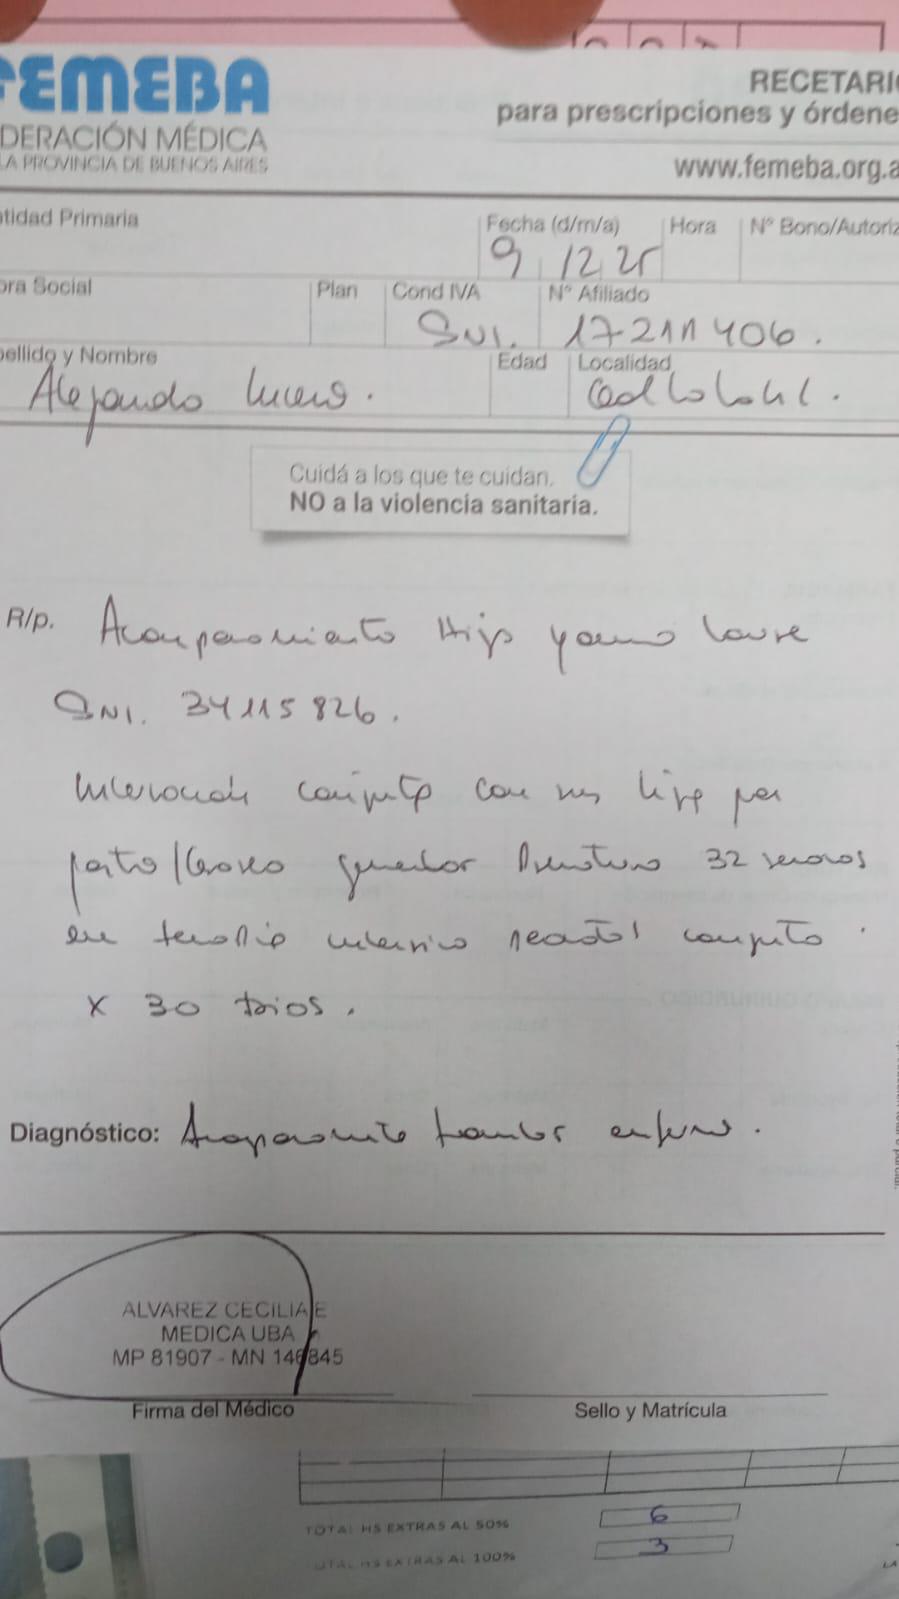 FEMEBA
DERACIÓN MÉDICA
LA PROVINCIA DE BUENOS AIRES
RECETARIO
para prescripciones y órdene
www.femeba.org.a
tidad Primaria
Fecha (d/m/a)
Hora
N° Bono/Autoriz
9 12 25
bra Social
Plan
Cond IVA
N° Afiliado
DNI. 17211406.
pellido y Nombre
Edad
Localidad
Alejandro Lucero.
Cuidá a los que te cuidan.
NO a la violencia sanitaria.
R/p. Acompañamiento Hija
DNI. 34115826.
conjunta con su hija por
parto/ 32 semanas
en conjunta
x 30 días.
Diagnóstico: Acompañamiento familiar enfermo.
ALVAREZ CECILIA E
MEDICA UBA
MP 81907 - MN 146845
Firma del Médico
Sello y Matrícula
TOTAL HS EXTRAS AL 50% 6
TOTAL HS EXTRAS AL 100% 3